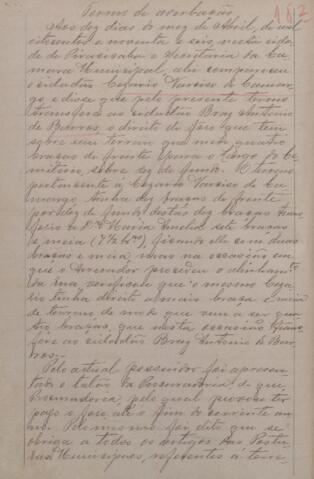 182
Termo de averbação.
Aos dez dias do mez de Abril, de mil
oitocentos e noventa e seis, nesta cida-
de de Piracicaba e Secretaria da Ca-
mara Municipal, ahi compareceu
o cidadão Cezario Narciso de Camar-
go e disse que pelo presente termo
transferia ao cidadão Braz Antonio
de Barros, o direito de foro que tem
sobre um terreno que mede quatro
braças de frente para o Largo do Ce-
miterio, sobre dez de fundo. O terreno
pertencente á Cezario Narciso de Ca-
margo, tinha dez braças de frente
por dez de fundo, destas dez braças trans-
ferio a Dª Maria Amelia sete braças
e meia (7½ bças), ficando elle com duas
braças e meia, mas na occasião em
que o Arruador procedeu o alinhamto
da rua, verificou que o mesmo Ceza-
rio tinha direito a mais braça e meia
de terreno, de modo que vem a ser qua-
tro braças, que nesta occasião trans-
fere ao cidadão Braz Antonio de Bar-
ros.
Pelo actual possuidor foi apresen-
tado o talão da Procuradoria de que,
Procuradoria, pelo qual provou ter
pago o foro até o fim do corrente an-
no. Pelo mesmo foi dito que se
obriga a todos os artigos das Postu-
ras Municipaes, referentes á terre-